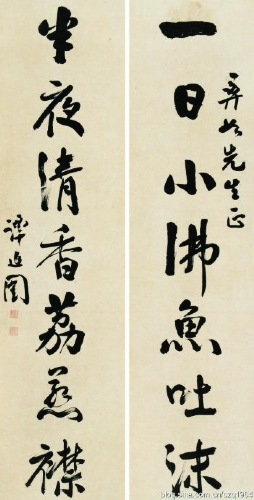 一日小沸魚吐沫
先生正
半夜清香荔惹襟
譚延闓
blog.sina.com.cn/czg1964